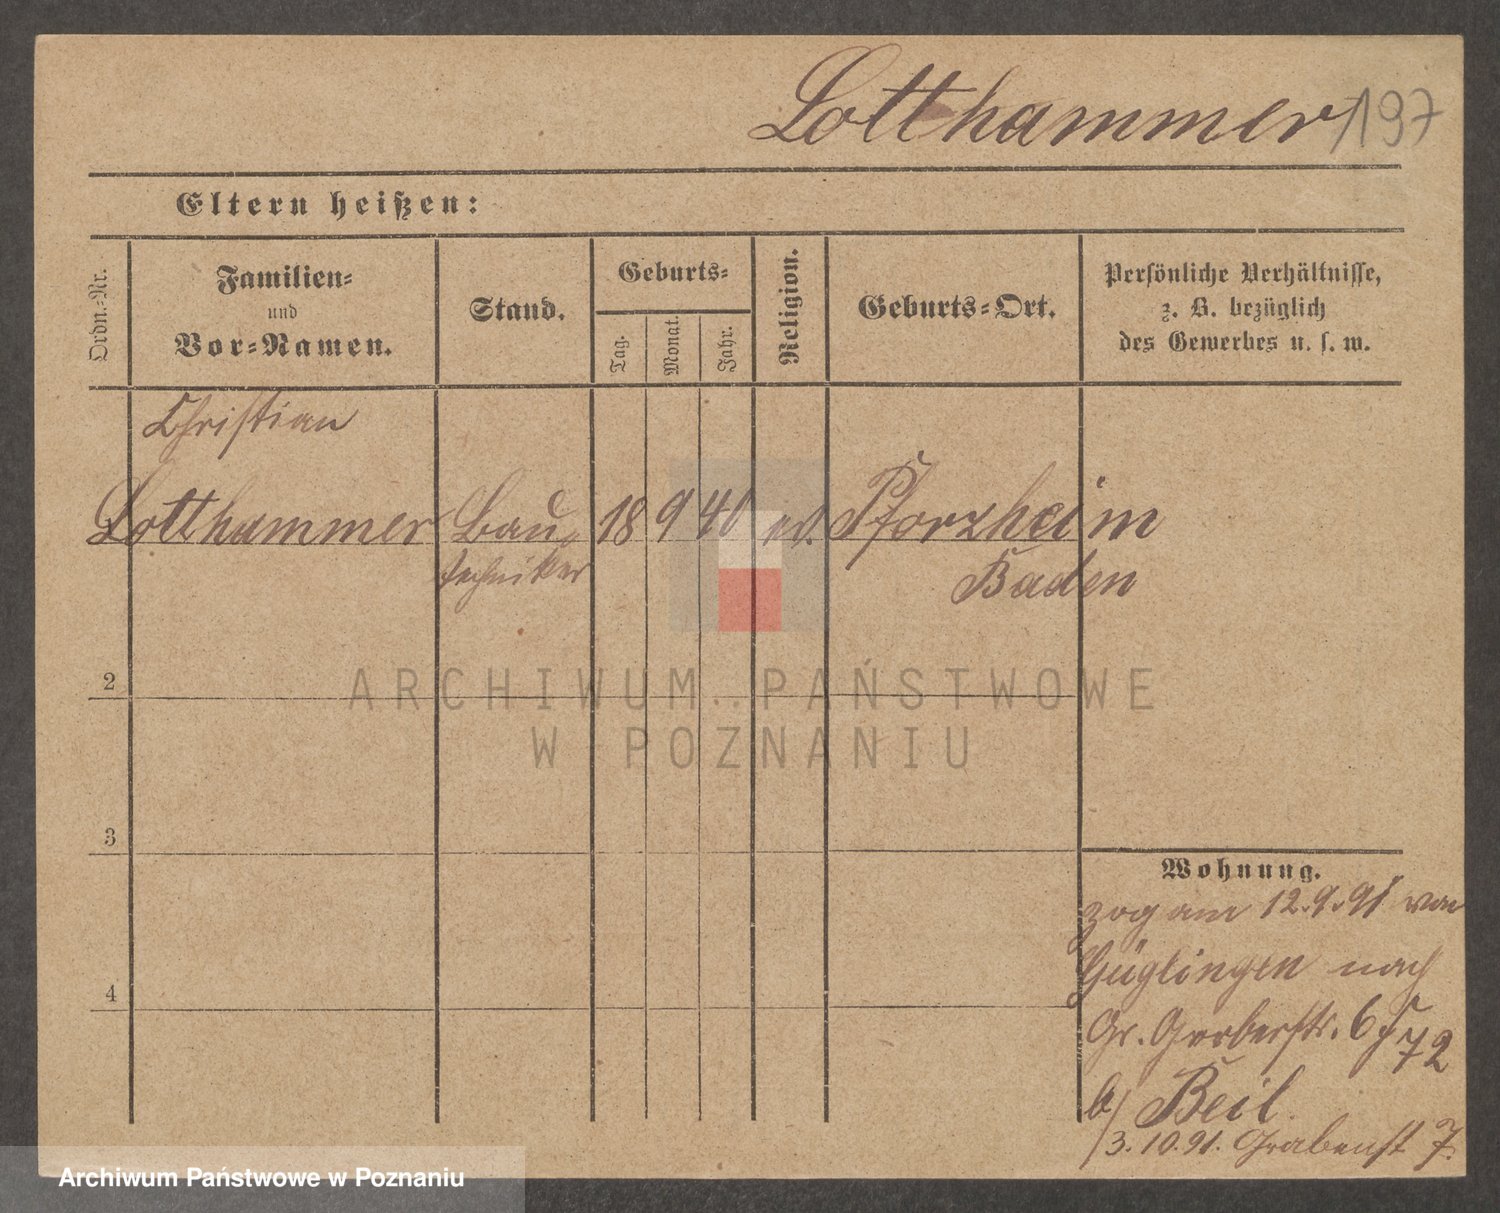 Lotthammer 197
Eltern heißen:
Ordn.-Nr.
Familien-
und
Vor-Namen.
Stand.
Geburts-
Tag.
Monat.
Jahr.
Religion.
Geburts-Ort.
Persönliche Verhältnisse,
z. B. bezüglich
des Gewerbes u. s. w.
Christian
Lotthammer Bau- 18 9 40 ev. Pforzheim
techniker Baden
2
3
4
Wohnung.
zog am 12.9.91 von
Güglingen nach
Gr. Gerberstr. 6
72
b/ Beil.
3.10.91. Grabenst 7.
ARCHIWUM PAŃSTWOWE
W POZNANIU
Archiwum Państwowe w Poznaniu